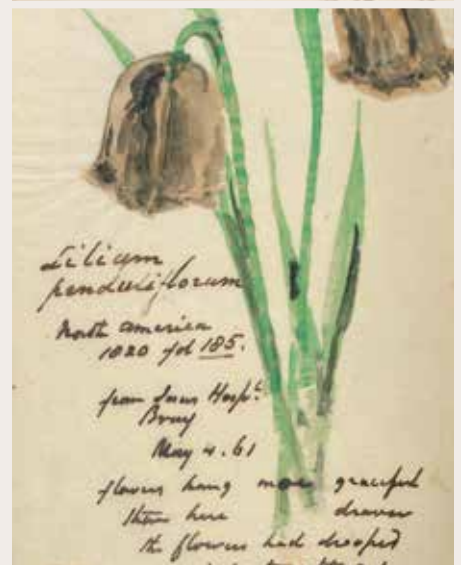 Lilium
penduliflorum
North America
1820 fol 185.
from Hosp.l
Bray
May 4. 61
flowers hang more graceful
than here drawn
the flowers had drooped